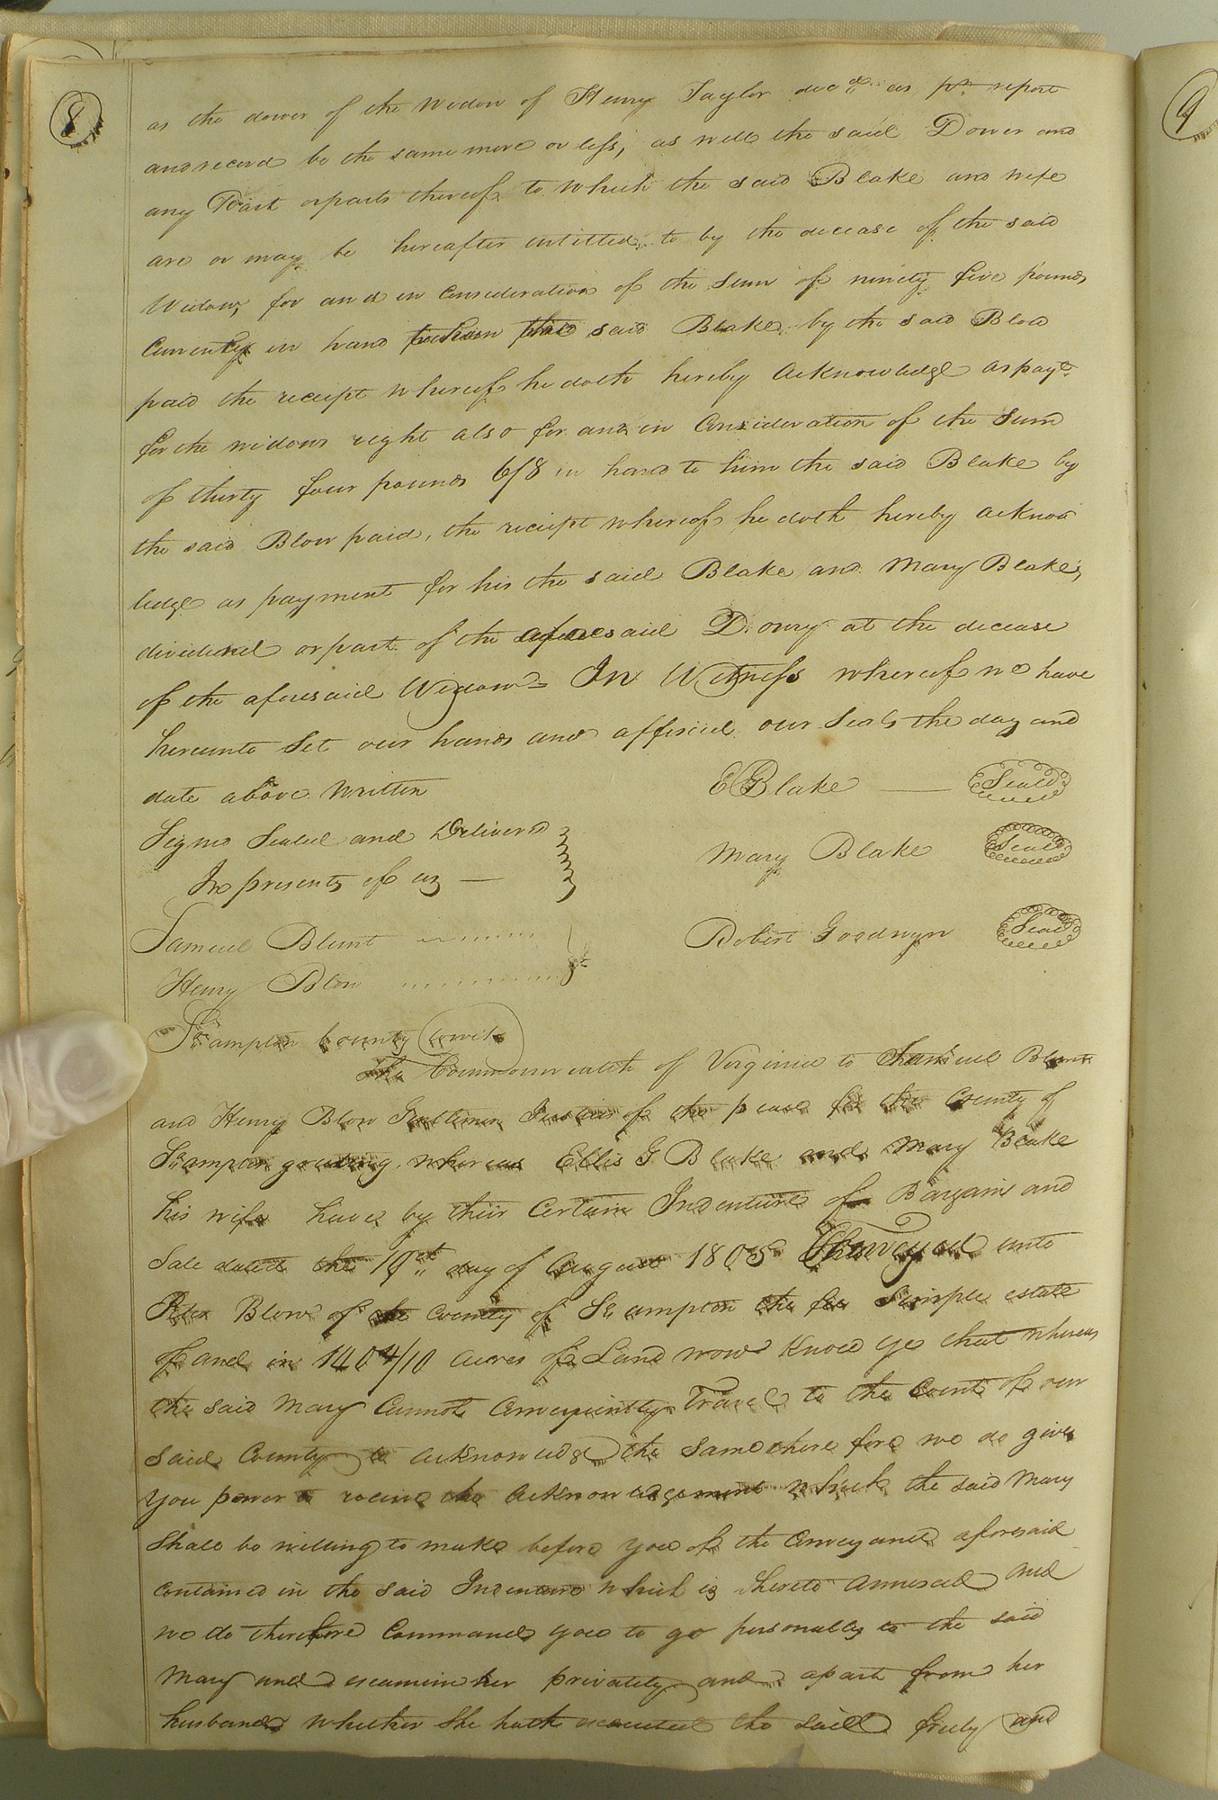 8
9
as the dower of the widow of Henry Taylor decd. as pr. report
and record be the same more or less, as well the said Dower and
any Part or parts thereof to which the said Blake and wife
are or may be hereafter intitled to by the decease of the said
Widow, for and in Consideration of the Sum of ninety five pounds
Currency in hand said Blake by the said Blow
paid the receipt whereof he doth hereby acknowledge as payt.
for the widows right also for and in Consideration of the Sum
of thirty four pounds 6/8 in hand to him the said Blake by
the said Blow paid, the receipt whereof he doth hereby acknow
ledge as payment for his the said Blake and Mary Blake's,
dividend or part of the aforesaid Dowry at the decease
of the aforesaid Widow = In Witness whereof we have
hereunto Set our hands and affixed our Seals the day and
date above Written
E G Blake — Seal
Signd Sealed and Deliverd
Mary Blake Seal
In presents of us —
Samuel Blunt
Robert Goodwyn Seal
Henry Blow
So:ampton County towit
The Commonwealth of Virginia to Samuel Blunt
and Henry Blow Gentlemen Justices of the peace for the County of
So:ampton greeting. whereas Ellis G Blake and Mary Blake
his wife have by their Certain Indenture of Bargain and
Sale dated the 19th day of August 1805 Conveyed unto
Peter Blow of the County of So:ampton the fee Simple estate
of and in 140 4/10 acres of Land now Know ye that whereas
the said Mary Cannot Conveniently Travel to the Court of our
said County to acknowledge the same therefore we do give
You power to receive the Acknowledgement which the said Mary
Shall be willing to make before you of the Conveyance aforesaid
contained in the said Indenture which is hereto annexed and
we do therefore Command you to go personally to the said
Mary and examine her privately and apart from her
husband whether She hath executed the said freely and